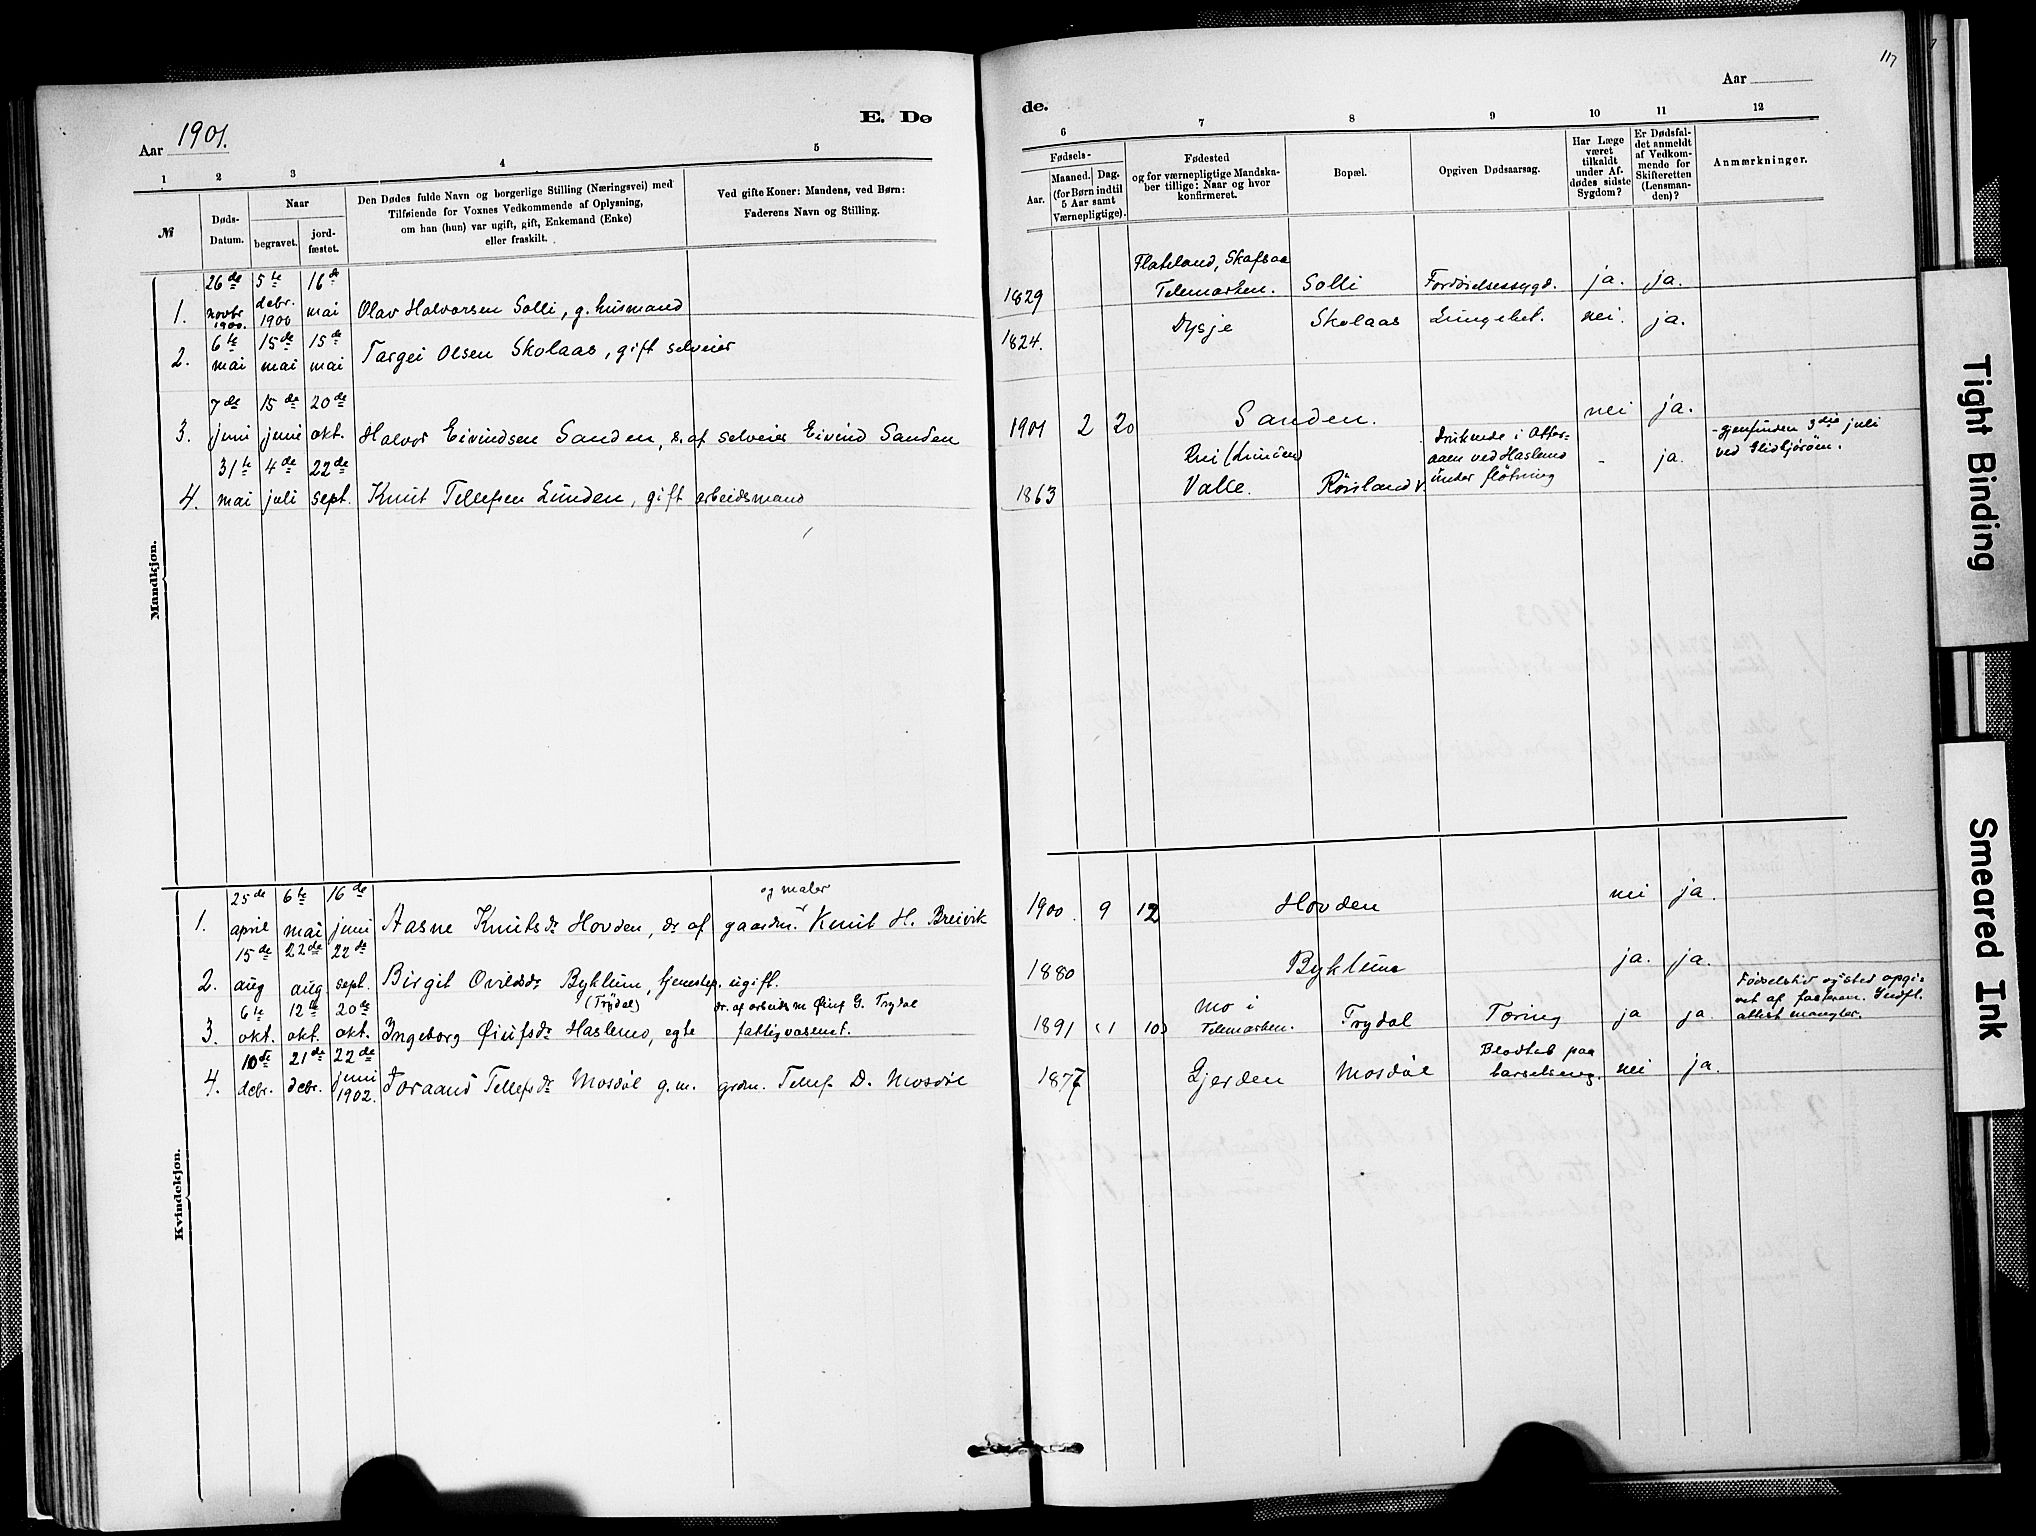 117
Aar 1901.
E. Dø
de.
Aar
1
2
3
4
5
6
7
8
9
10
11
12
№
Døds-
Datum.
Naar
begravet.
jord-
fæstet.
Den Dødes fulde Navn og borgerlige Stilling (Næringsvei) med
Tilføiende for Voxnes Vedkommende af Oplysning,
om han (hun) var ugift, gift, Enkemand (Enke)
eller fraskilt.
Ved gifte Koner: Mandens, ved Børn:
Faderens Navn og Stilling.
Fødsels-
Aar.
Maaned.
Dag.
(for Børn indtil
5 Aar samt
Værnepligtige).
Fødested
og for værnepligtige Mandska-
ber tillige: Naar og hvor
konfirmeret.
Bopæl.
Opgiven Dødsaarsag.
Har Læge
været
tilkaldt
under Af-
dødes sidste
Sygdom?
Er Dødsfal-
det anmeldt
af Vedkom-
mende for
Skifteretten
(Lensman-
den)?
Anmærkninger.
Mandkjøn.
26de 5te 16de
novbr debr. mai
1900. 1900
1. Olav Halvorsen Solli, g. husmand
1829
Flateland, Skafsaa
Telemarken. Solli Fordøielsessygd. ja. ja.
6te 15de 15de
2. mai mai mai Targei Olsen Skolaas, gift selveier
1824. Dysje Skolaas Lungebet. nei. ja.
7de 15de 20de
3. juni juni okt. Halvor Eivindsen Sanden, s. af selveier Eivind Sanden
1901 2 20 Sanden. nei ja.
31te 4de 22de
4. mai juli sept. Knut Tellefsen Lunden, gift arbeidsmand
1863 Valle. Røisland v.
Drukende i Otter-
aaen ved Haslemo
under fløtning
- ja.
-gjenfunden 3die juli
ved
Kvindekjøn.
25de 6te 16de
og maler
1. april mai juni Aasne Knutsdr Hovden, dr af gaardm. Knut H. Breivik
1900. 9 12 Hovden nei ja.
15de 22de 22de
2. aug aug. sept. Birgit Byklum, tjenestep. ugift.
1880 Byklum ja. ja.
6te 12te 20de
(Trydal) dr. af arbeidsm Øiuf G. Trydal
3. okt. okt. okt. Ingeborg Øiufsdr Haslemo, egte fattigvæsenet.
1891 (1 10) Mo i
Telemarken. Trydal Tæring ja ja.
Fødselstid og sted opgi-
vet af faderen. Indfl.
attest mangler.
10de 21de 22de
4. debr. debr. juni
1902. Toraand Tellefsdr Mosdøl g.m. grdm. Tellef D. Mosdøl
1877 Gjerden Mosdøl
Blodtab paa
barselseng. nei ja.
Tight Binding
Smeared Ink